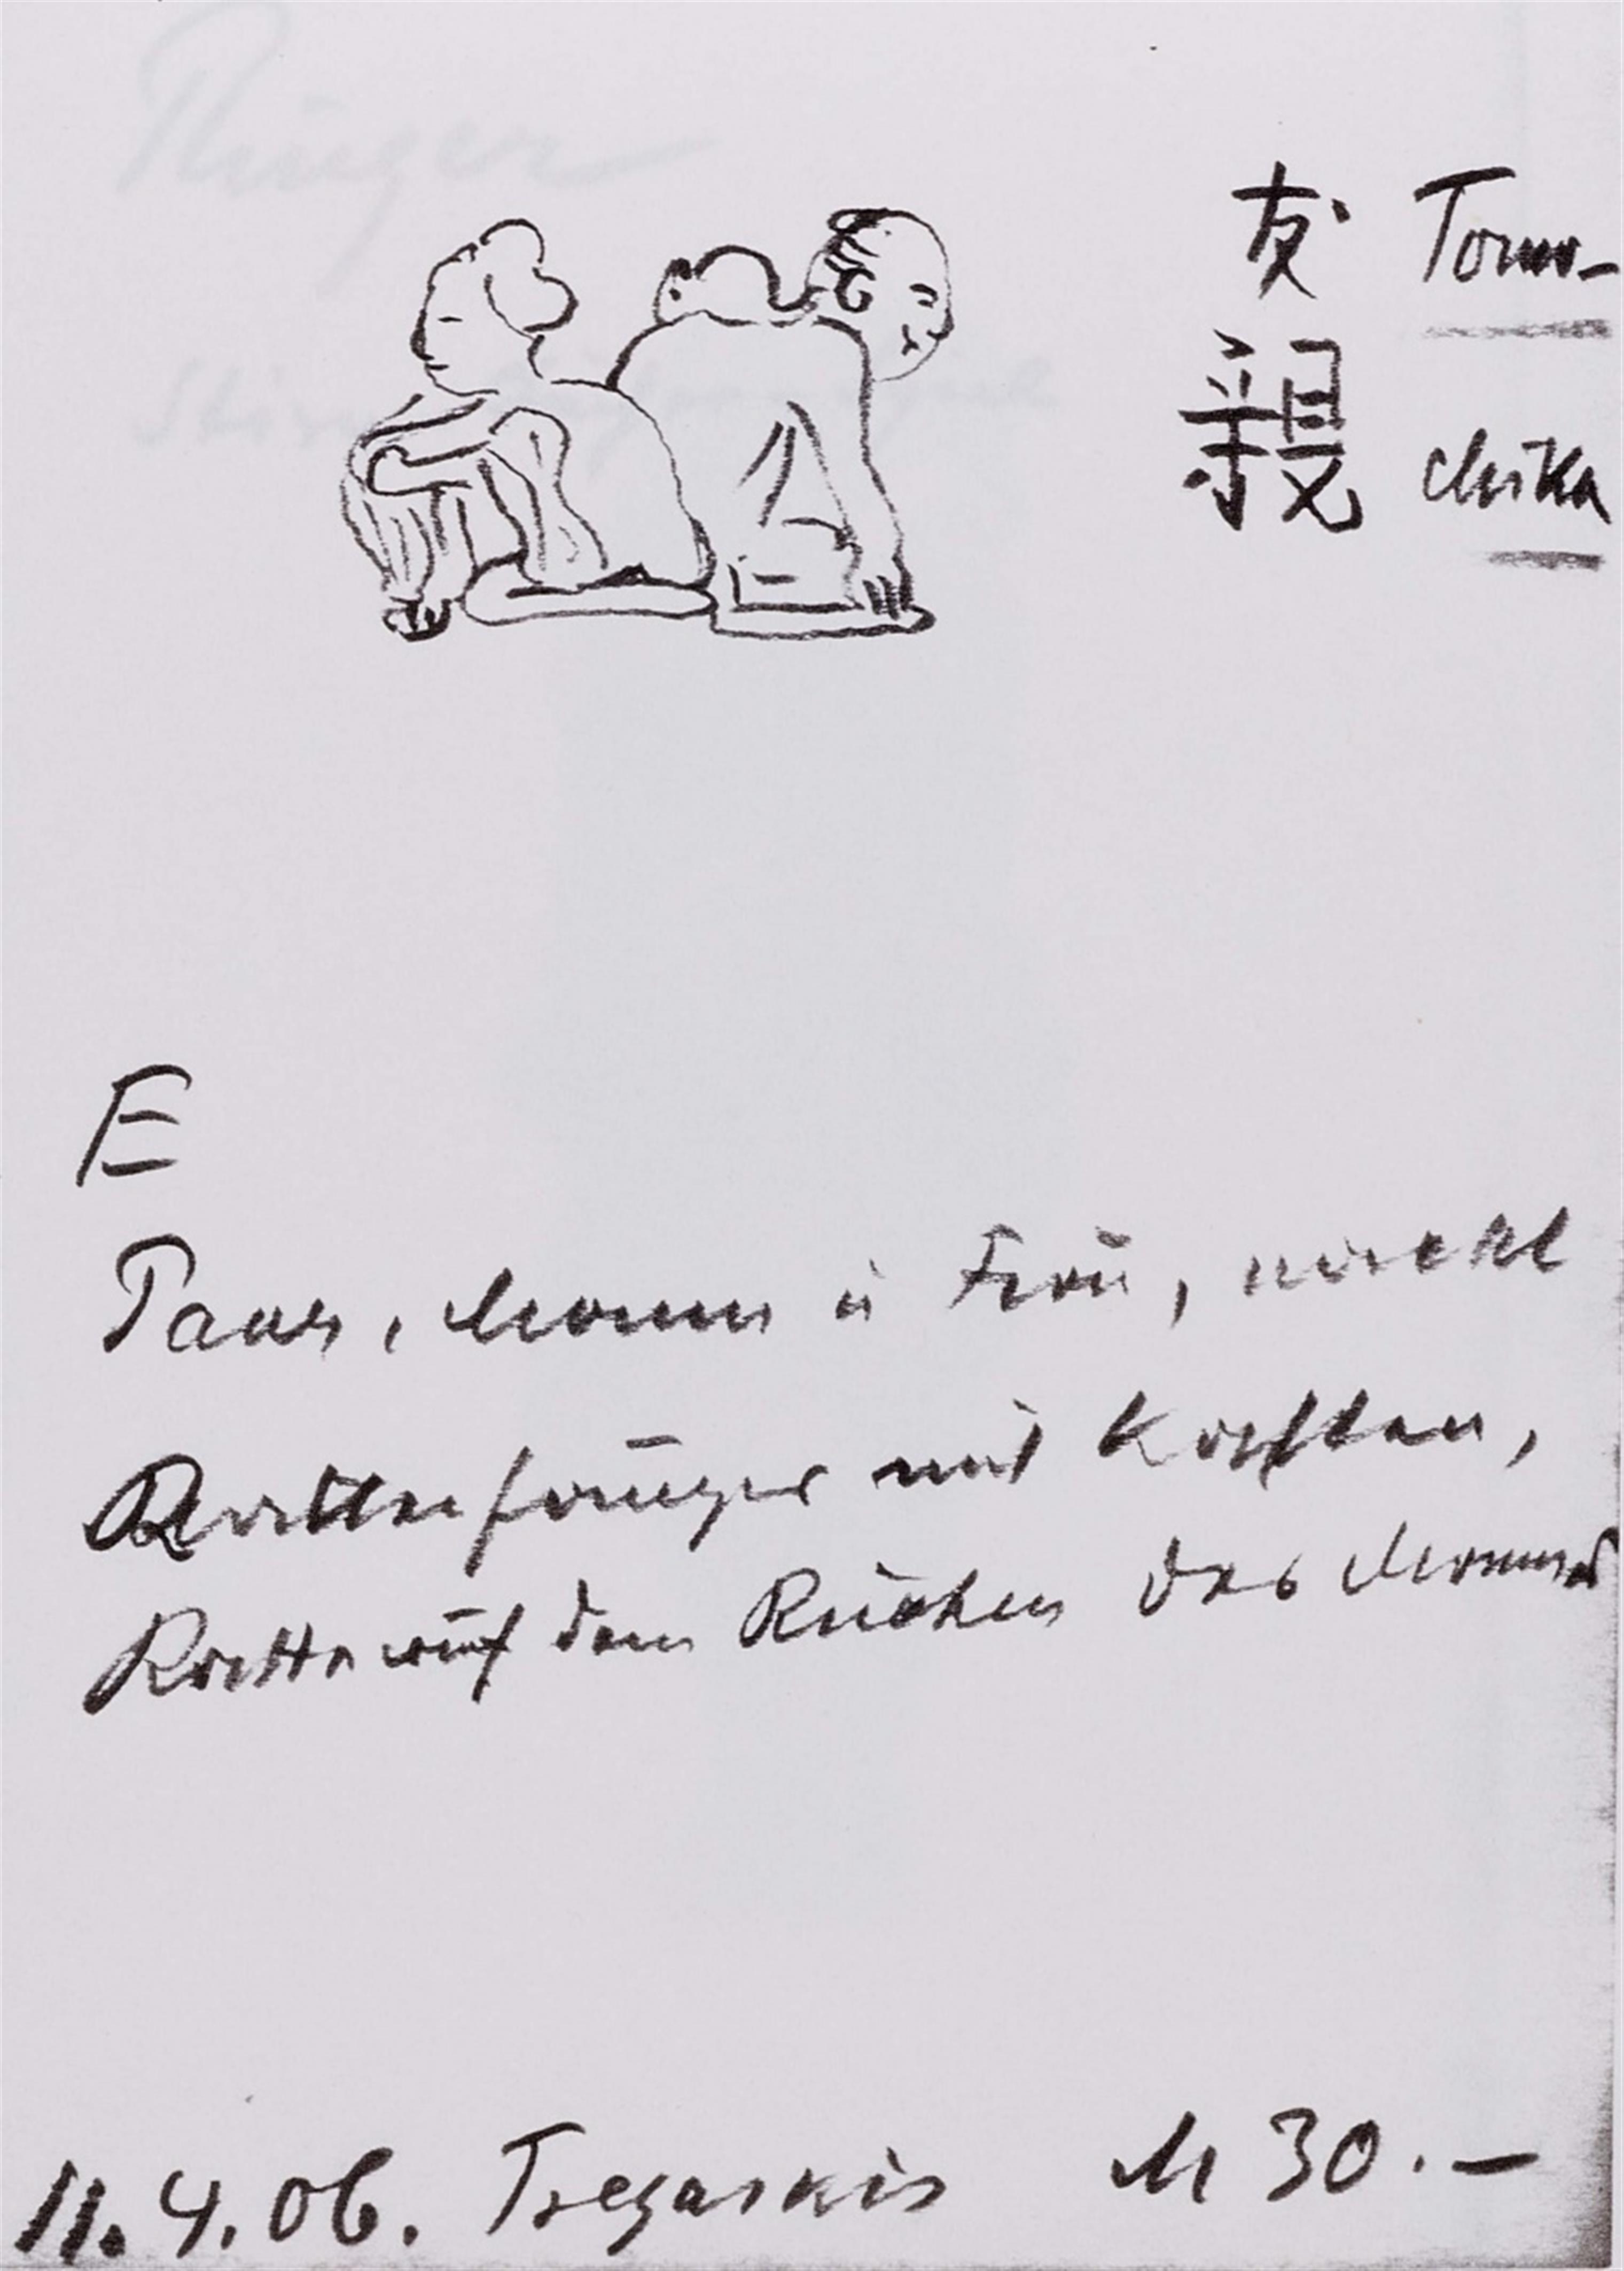 友 Tomo-
親 chika
E
Paar, Mann u Frau, nackt
Rattenfänger mit Kasten,
Ratte auf dem Rücken des Mannes
11.4.06. Tregaskis M 30.—